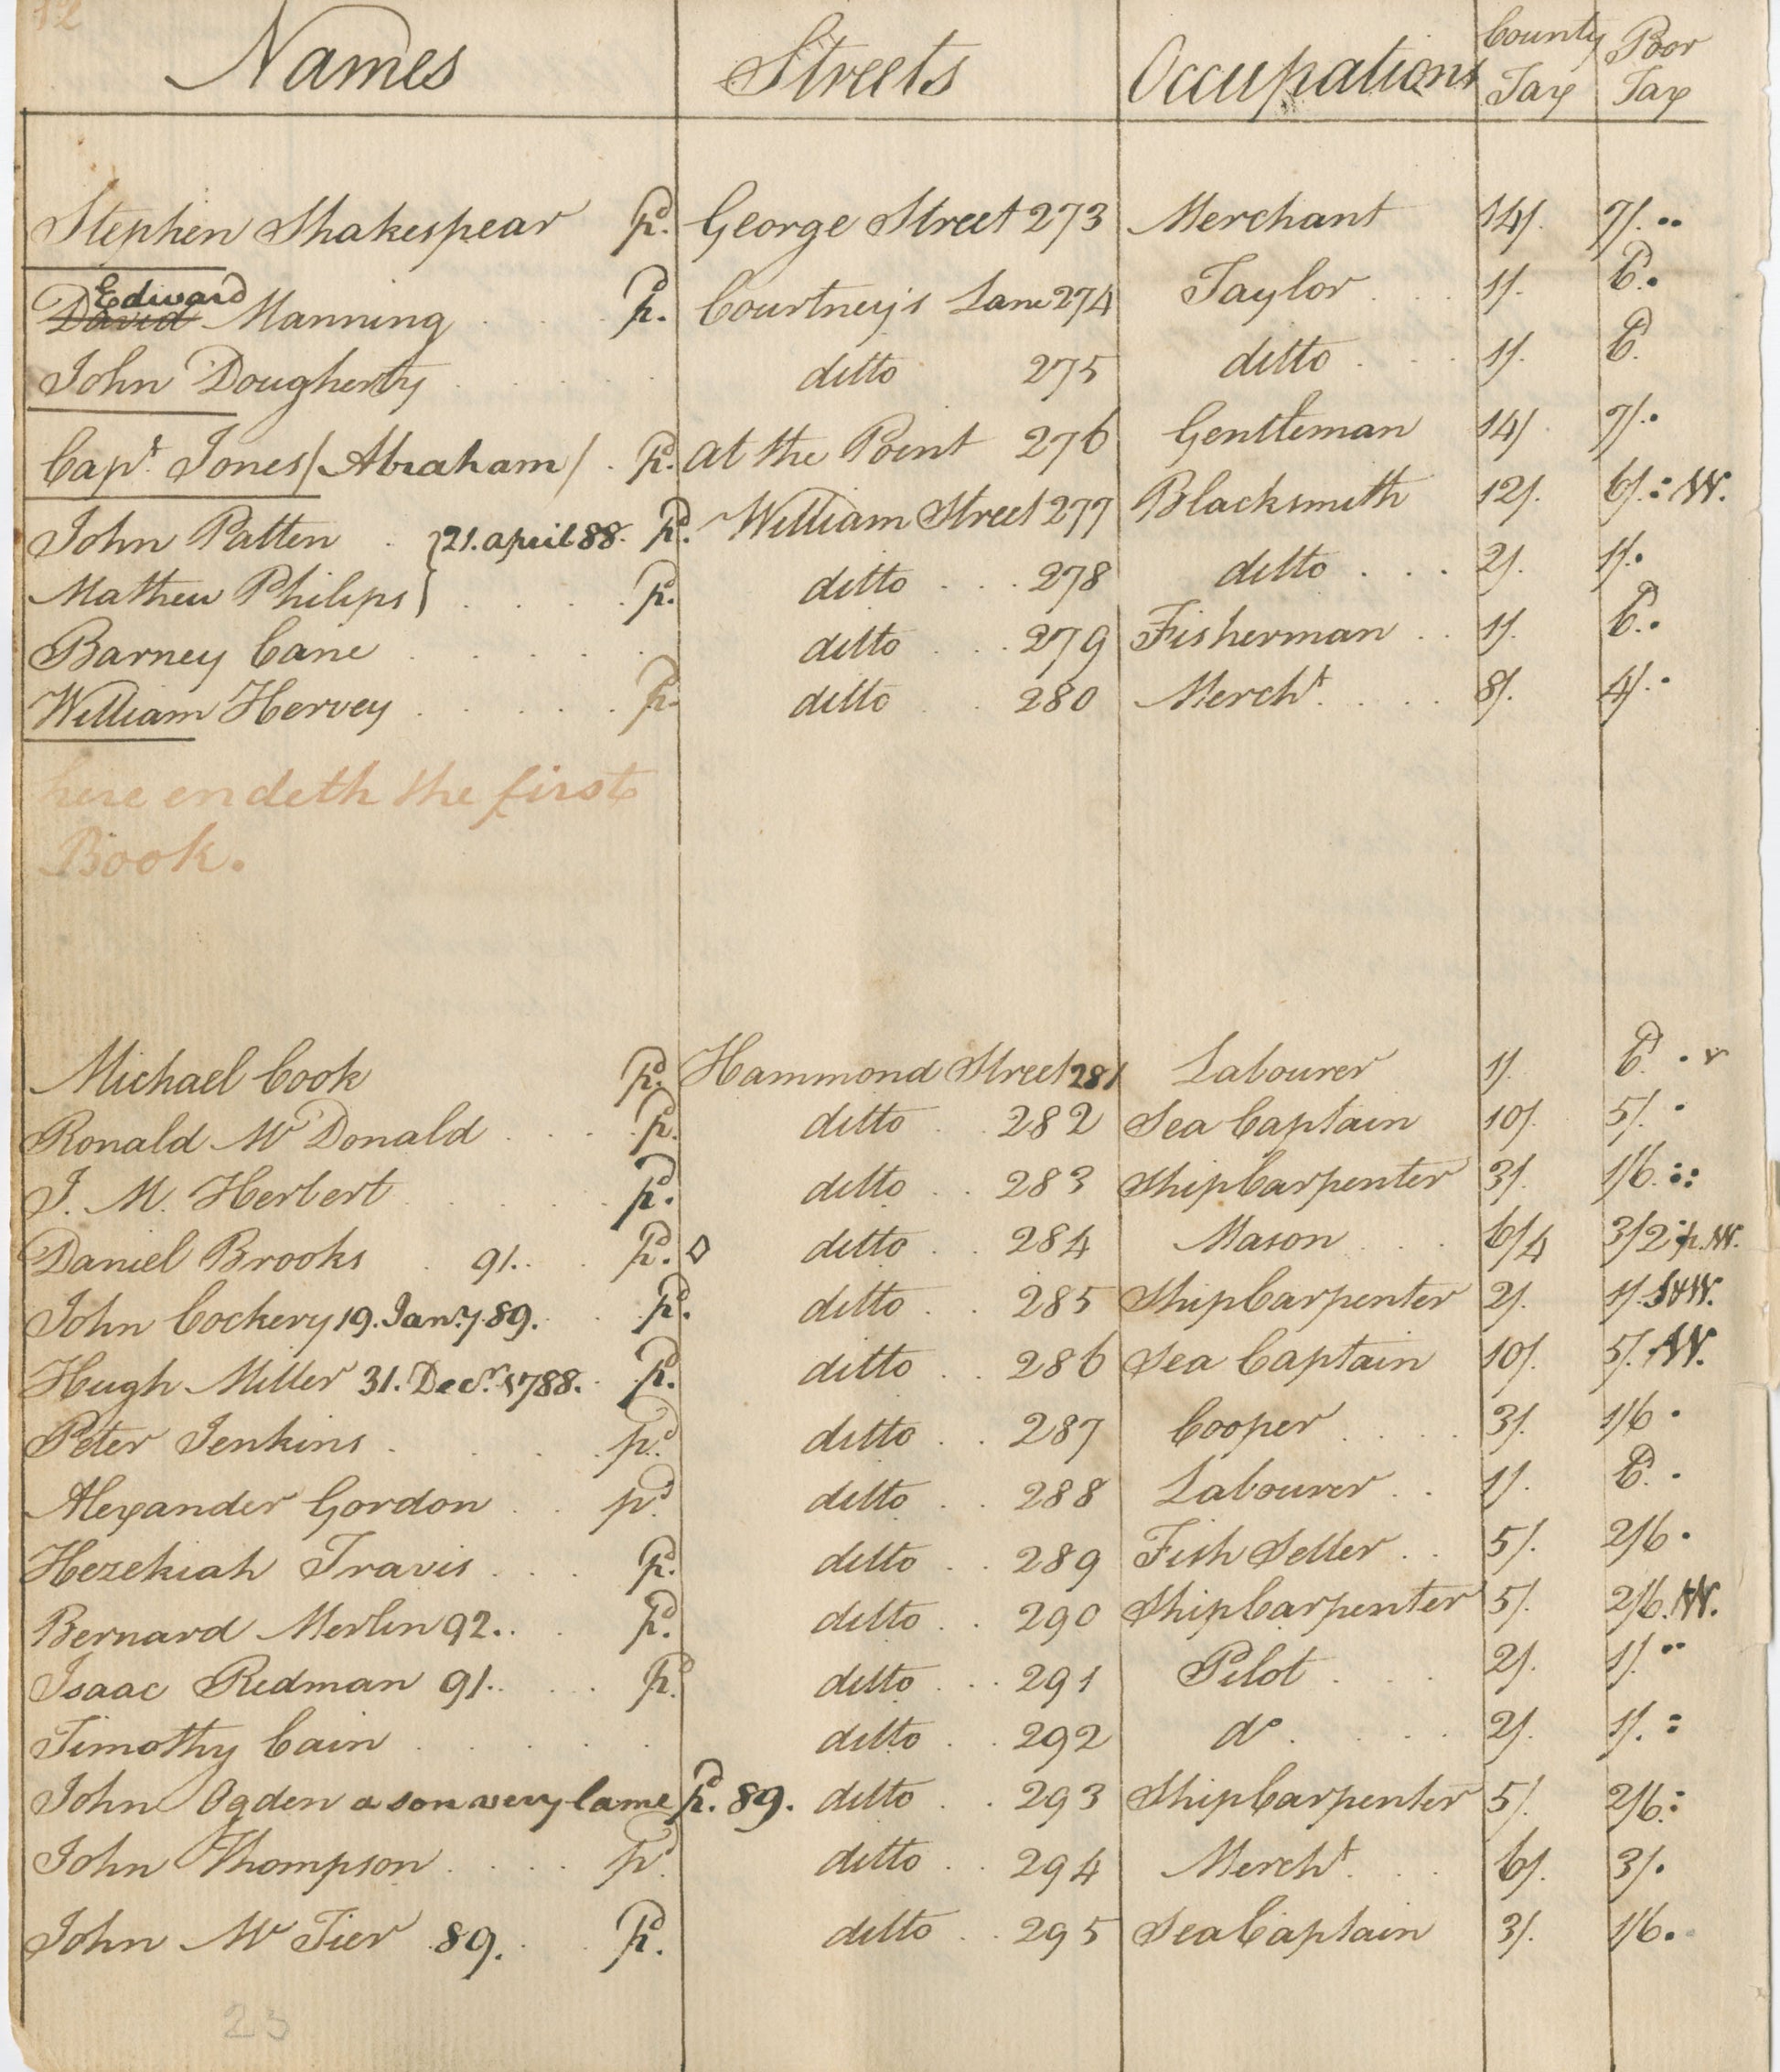 12
Names Streets Occupations County Tax Poor Tax
Stephen Shakespear pd. George Street 273 Merchant 14/. 7/. ..
Edward
David Manning . . . pd. Courtney's Lane 274 Taylor . . . 1/. 6d. .
John Dougherty . . . . . ditto 275 ditto . . . 1/. 6d.
Capt. Jones/Abraham/ . pd. at the Point 276 Gentleman 14/. 7/. .
John Patten . } 21. april 88. pd. William Street 277 Blacksmith 12/. 6/. : W.
Mathew Philips } . . . . pd. ditto . . . 278 ditto . . . 2/. 1/. .
Barney Cane . . . . . ditto . . . 279 Fisherman . . 1/. 6d. .
William Hervey . . . . . pd. ditto . . 280 Mercht. . . . . 8/. 4/. .
here endeth the first
Book.
Michael Cook pd. Hammond Street 281 Labourer 1/. 6d. .
Ronald Mc Donald . . . . pd. ditto . . 282 Sea Captain 10/. 5/. .
J. M. Herbert . . . . . pd. ditto . . 283 Ship Carpenter 3/. 1/6. ::
Daniel Brooks . 91. . . pd. ditto . . 284 Mason . . . 6/4 3/2 : p. W.
John Cockery 19. Jany. 89. . . pd. ditto . . 285 Ship Carpenter 2/. 1/.
Hugh Miller 31. Decr. 1788. . pd. ditto . . 286 Sea Captain 10/. 5/. W.
Peter Jenkins . . . . . pd. ditto . . 287 Cooper . . . . 3/. 1/6 .
Alexander Gordon . . pd. ditto . . 288 Labourer . . 1/. 6d. .
Hezekiah Travis . . . pd. ditto . . 289 Fish Seller . . 5/. 2/6 .
Bernard Merlin 92. . . pd. ditto . . 290 Ship Carpenter 5/. 2/6. W.
Isaac Redman 91. . . . pd. ditto . . . 291 Pilot . . . 2/. 1/. ..
Timothy Cain . . . . . ditto . . 292 do. . . . . 2/. 1/. :
John Ogden a son very lame pd. 89. ditto . . 293 Ship Carpenter 5/. 2/6. :
John Thompson . . . . pd. ditto . . 294 Mercht. . . . 6/. 3/. .
John Mc Tier 89. . . pd. ditto . . 295 Sea Captain 3/. 1/6. .
23